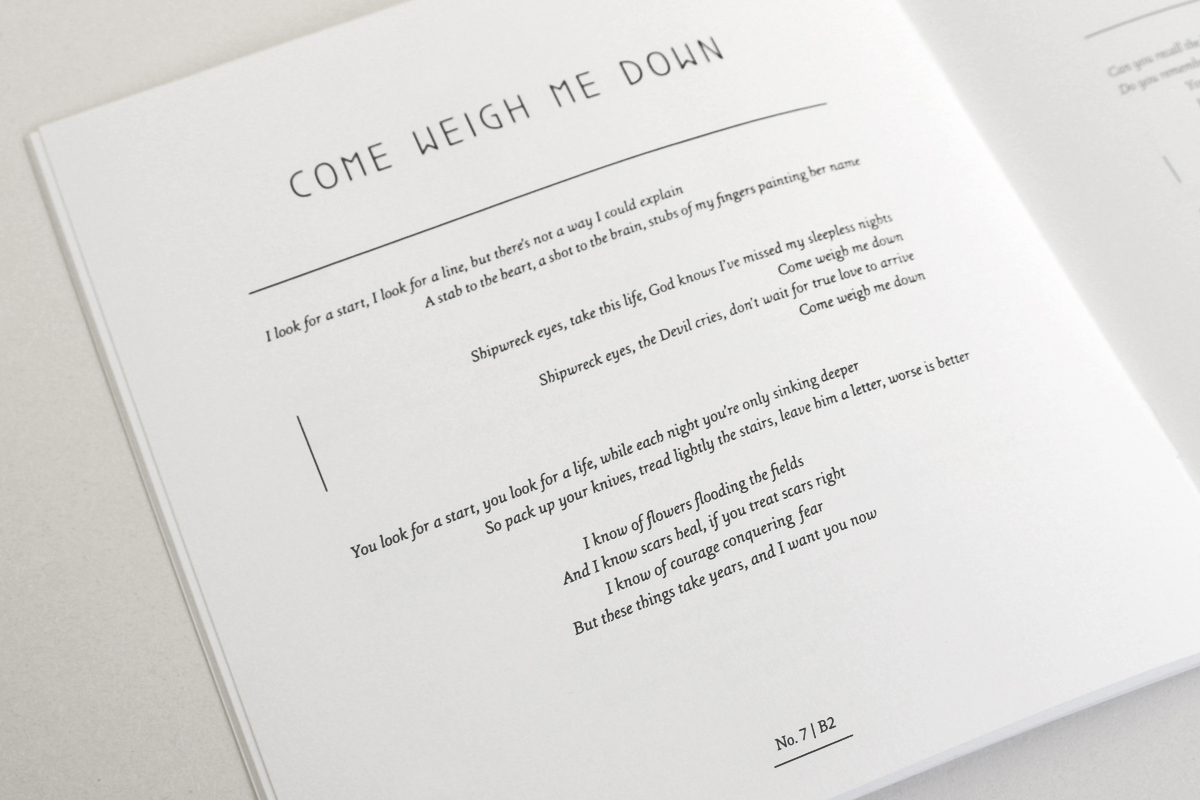 COME WEIGH ME DOWN
I look for a start, I look for a line, but there's not a way I could explain
A stab to the heart, a shot to the brain, stubs of my fingers painting her name
Shipwreck eyes, take this life, God knows I've missed my sleepless nights
Come weigh me down
Shipwreck eyes, the Devil cries, don't wait for true love to arrive
Come weigh me down
You look for a start, you look for a life, while each night you're only sinking deeper
So pack up your knives, tread lightly the stairs, leave him a letter, worse is better
I know of flowers flooding the fields
And I know scars heal, if you treat scars right
I know of courage conquering fear
But these things take years, and I want you now
No. 7 | B2
Can you recall the
Do you rememb